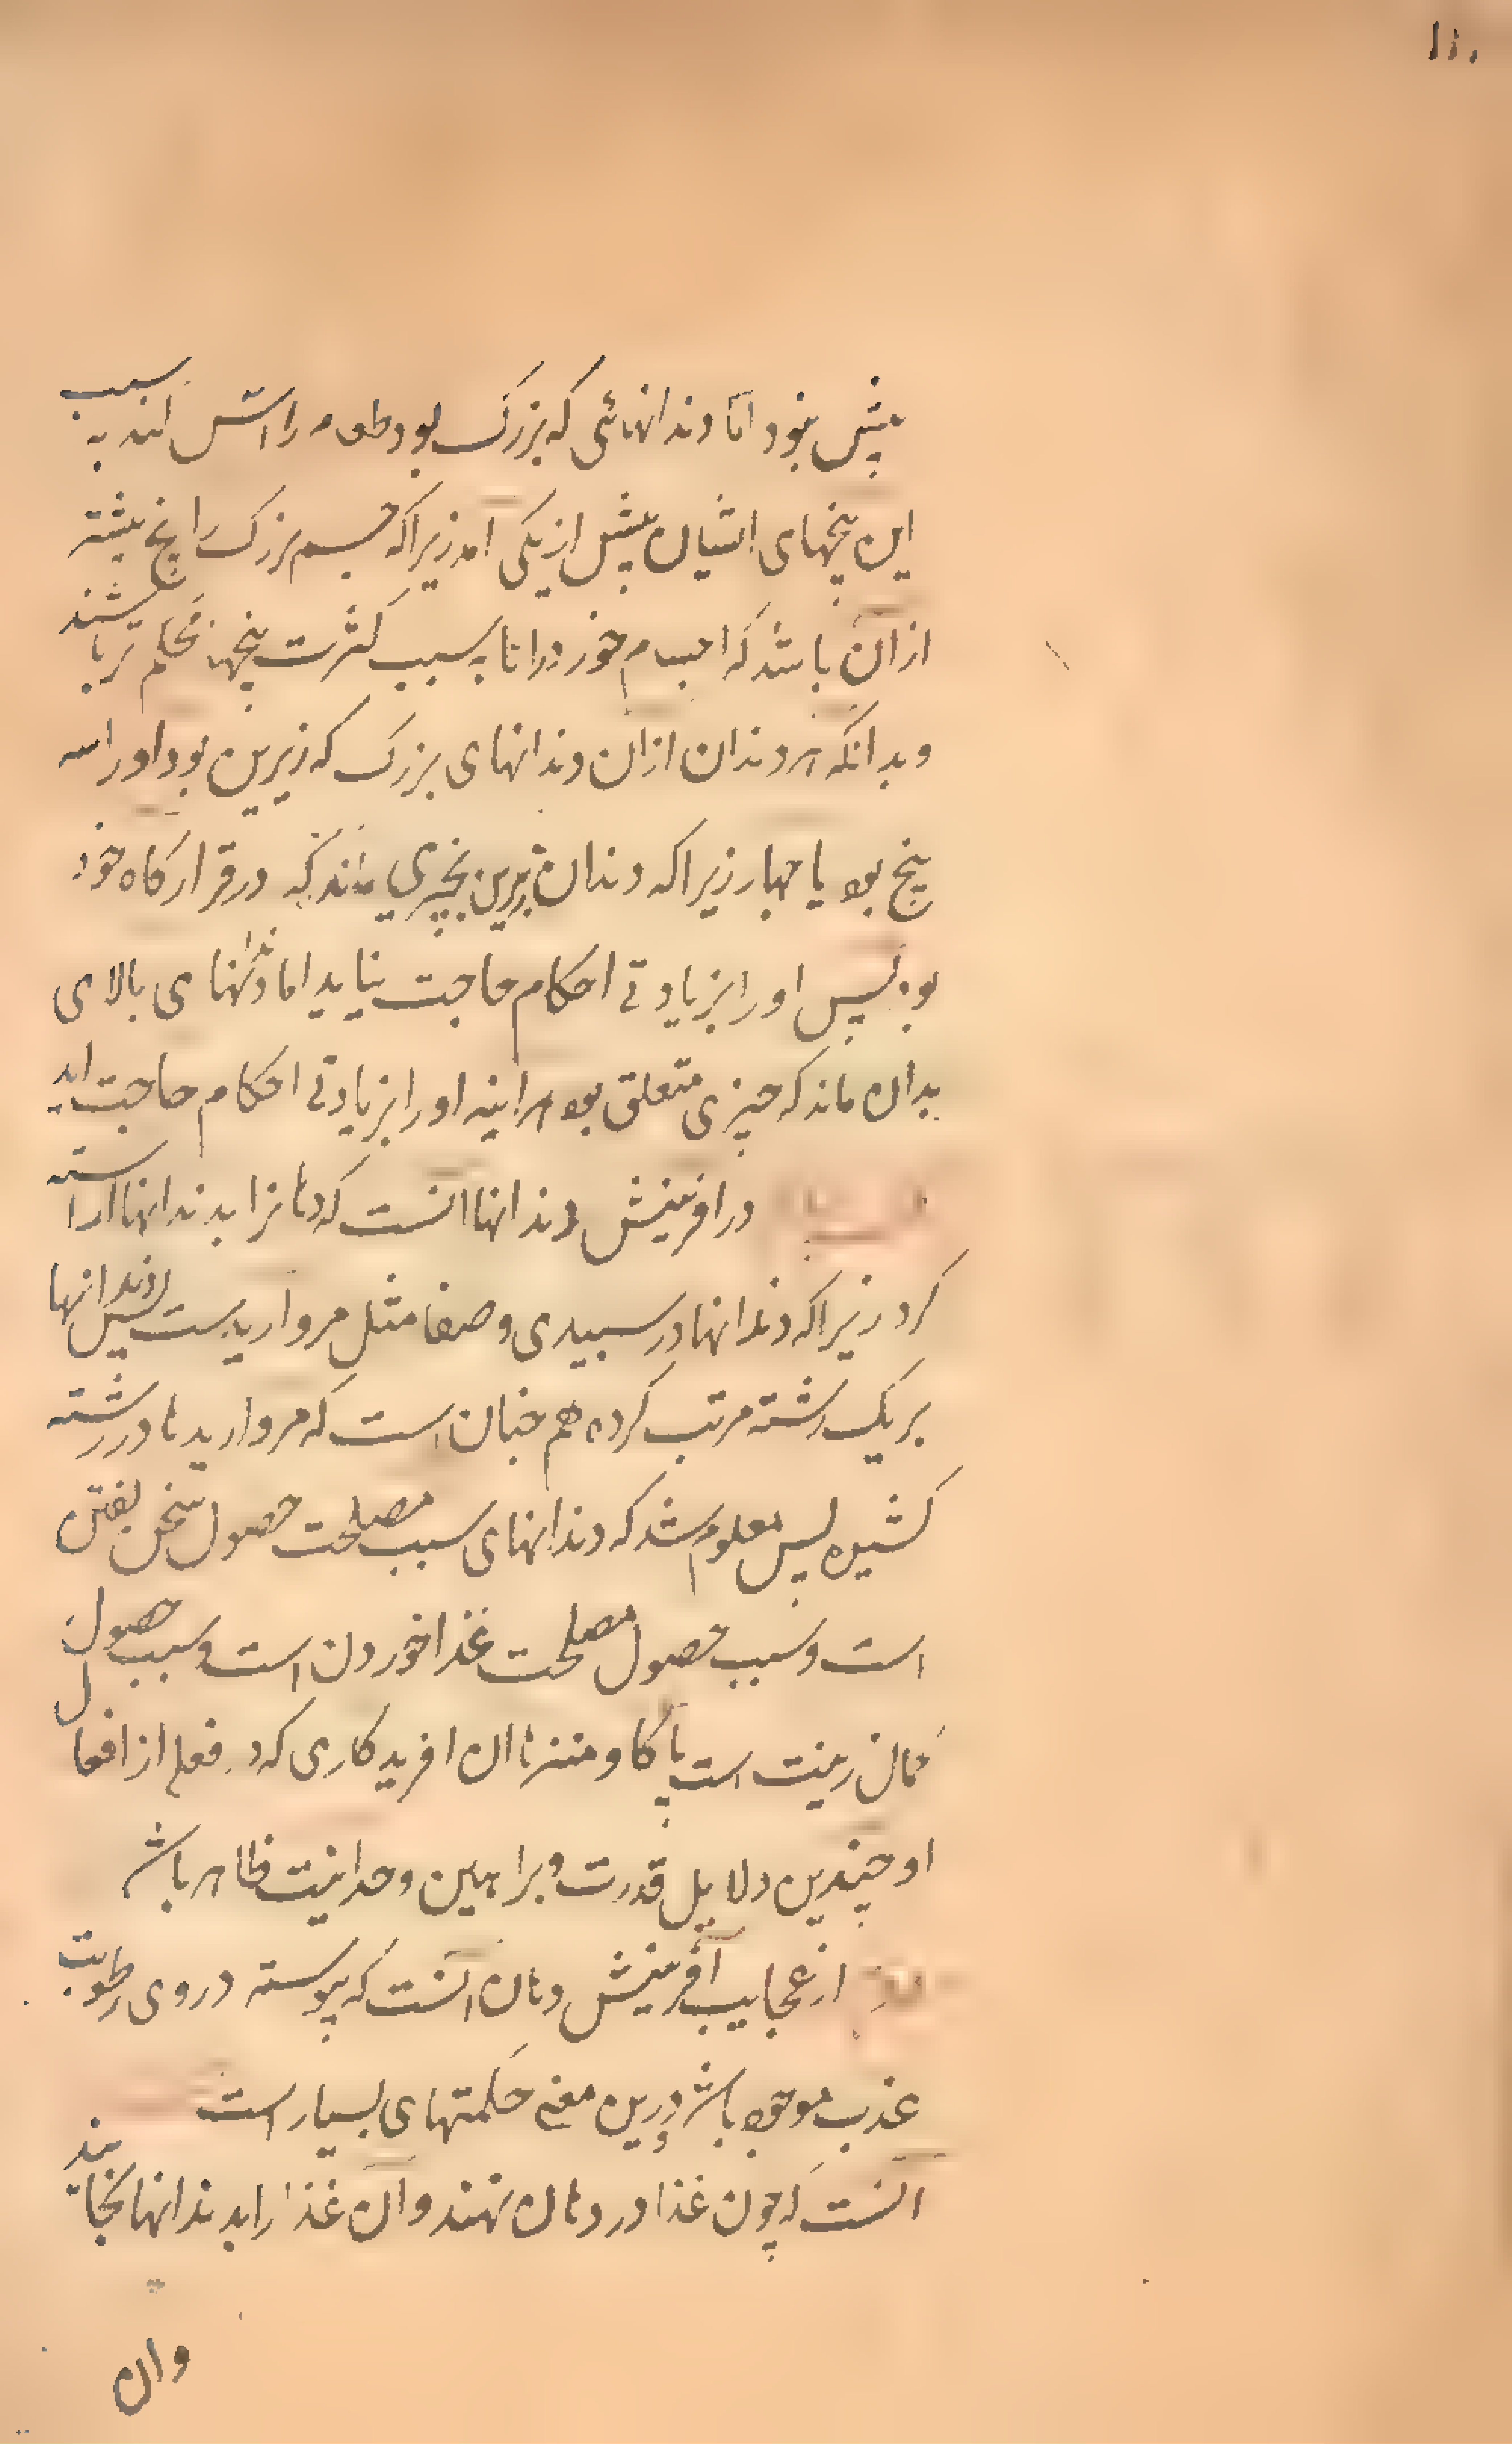 ۱۱۰
بیش نبود اما دندانهائی که بزرک بود طعمه را اس کند به سبب
این بیخهای ایشان بیش از یکی امد زیرا که جسم بزرک را بیخ بیشتر
از ان باشد که اجسام خورد را تا به سبب کثرت بیخها محکم تر باشند
و بدانکه هر دندان از ان دندانهای بزرک که زیرین بود او را سه
بیخ بود یا چهار زیرا که دندان زیرین بچیزی ماند که در قرارکاه خود
بود پس او را بزیادتی احکام حاجت نیاید اما دندانهای بالای
بدان ماند که چیزی متعلق بود هراینه او را بزیادتی احکام حاجت اید
در افرینش دندانها انست که دهانرا بدندانها اراسته
کرد زیرا که دندانها در سبیدی و صفا مثل مروارید است پس دندانها
بر یک رشته مرتب کرده هم چنان است که مروارید ها در رشته
کشیده پس معلوم شد که دندانهای سبب مصلحت حصول سخن بفتن
است و سبب حصول مصلحت غذا خوردن است و سبب حصول
کمال زینت است پاکا و منزها ان افریدکاری که در فعلی از افعال
او چندین دلایل قدرت و براهین وحدانیت ظاهر باشد
از عجایب آفرینش دهان انست که پیوسته در وی رطوبت
عذب موجود باشد و درین معنی حکمتهای بسیار است
انست که چون غذا در دهان نهند و ان غذا را بدندانها بخایند
وان